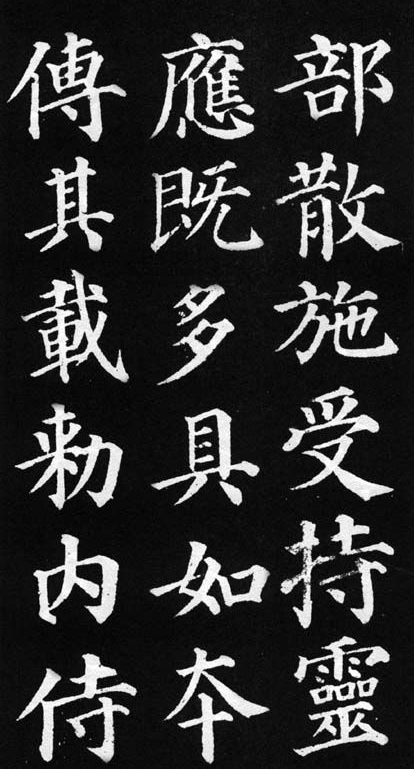 部散施受持靈
應既多具如夲
傳其載勑内侍